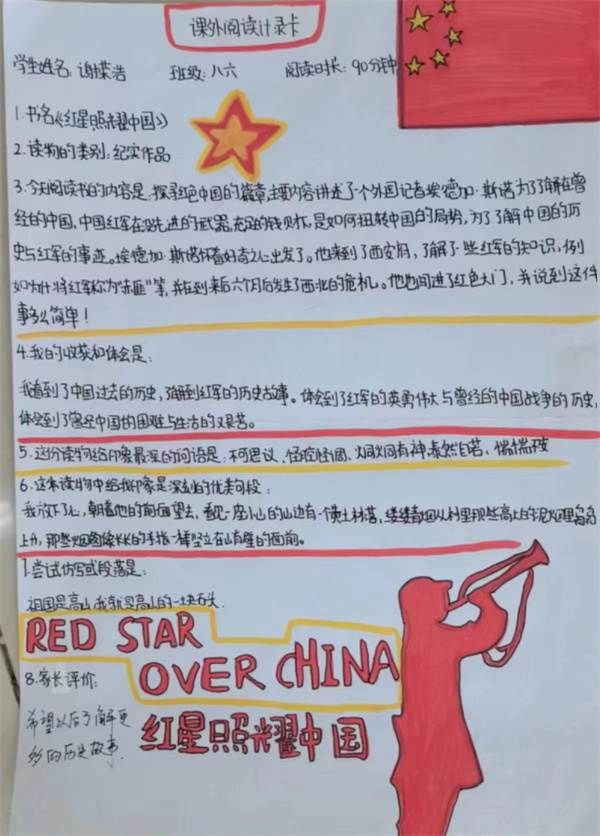 课外阅读计录卡
学生姓名:谢荣浩 班级:八六 阅读时长:90分钟
1.书名《红星照耀中国》
2.读物的类别:纪实作品
3.今天阅读书的内容是:探寻红色中国的篇章,主要内容讲述了个外国记者埃德加·斯诺为了了解在曾
经的中国,中国红军在没先进的武器,充足的钱财下,是如何扭转中国的局势,为了了解中国的历
史与红军的事迹。埃德加·斯诺怀着好奇之心出发了。他来到了西安府,了解了些红军的知识,例
如为什将红军称为“赤匪”等,并在到来后六个月后发生了西北的危机。他也间进了红色大门,并说到这件
事多么简单!
4.我的收获和体会是:
我看到了中国过去的历史,了解到红军的历史故事。体会到了红军的英勇伟大与曾经的中国战争的历史,
体会到了曾经中国的困难与生活的艰苦。
5.这份读物给印象最深的词语是:不可思议、怪腔怪调、炯炯有神、肃然 惴惴不安
6.这本读物中给我印象是深刻的优美句段:
我放下了心,朝着他的前面望去,看见一座小山的山边有一个黄土村落,缕缕青烟从村里那些高大的泥烟囱里袅袅
上升,那些烟囱像长长的手指一样竖立在山崖壁的面前。
7.尝试仿写或段落是:
祖国是高山,我就是高山的一块石头.
RED STAR
OVER CHINA
8.家长评价:
希望以后了解更
多的历史故事.
红星照耀中国